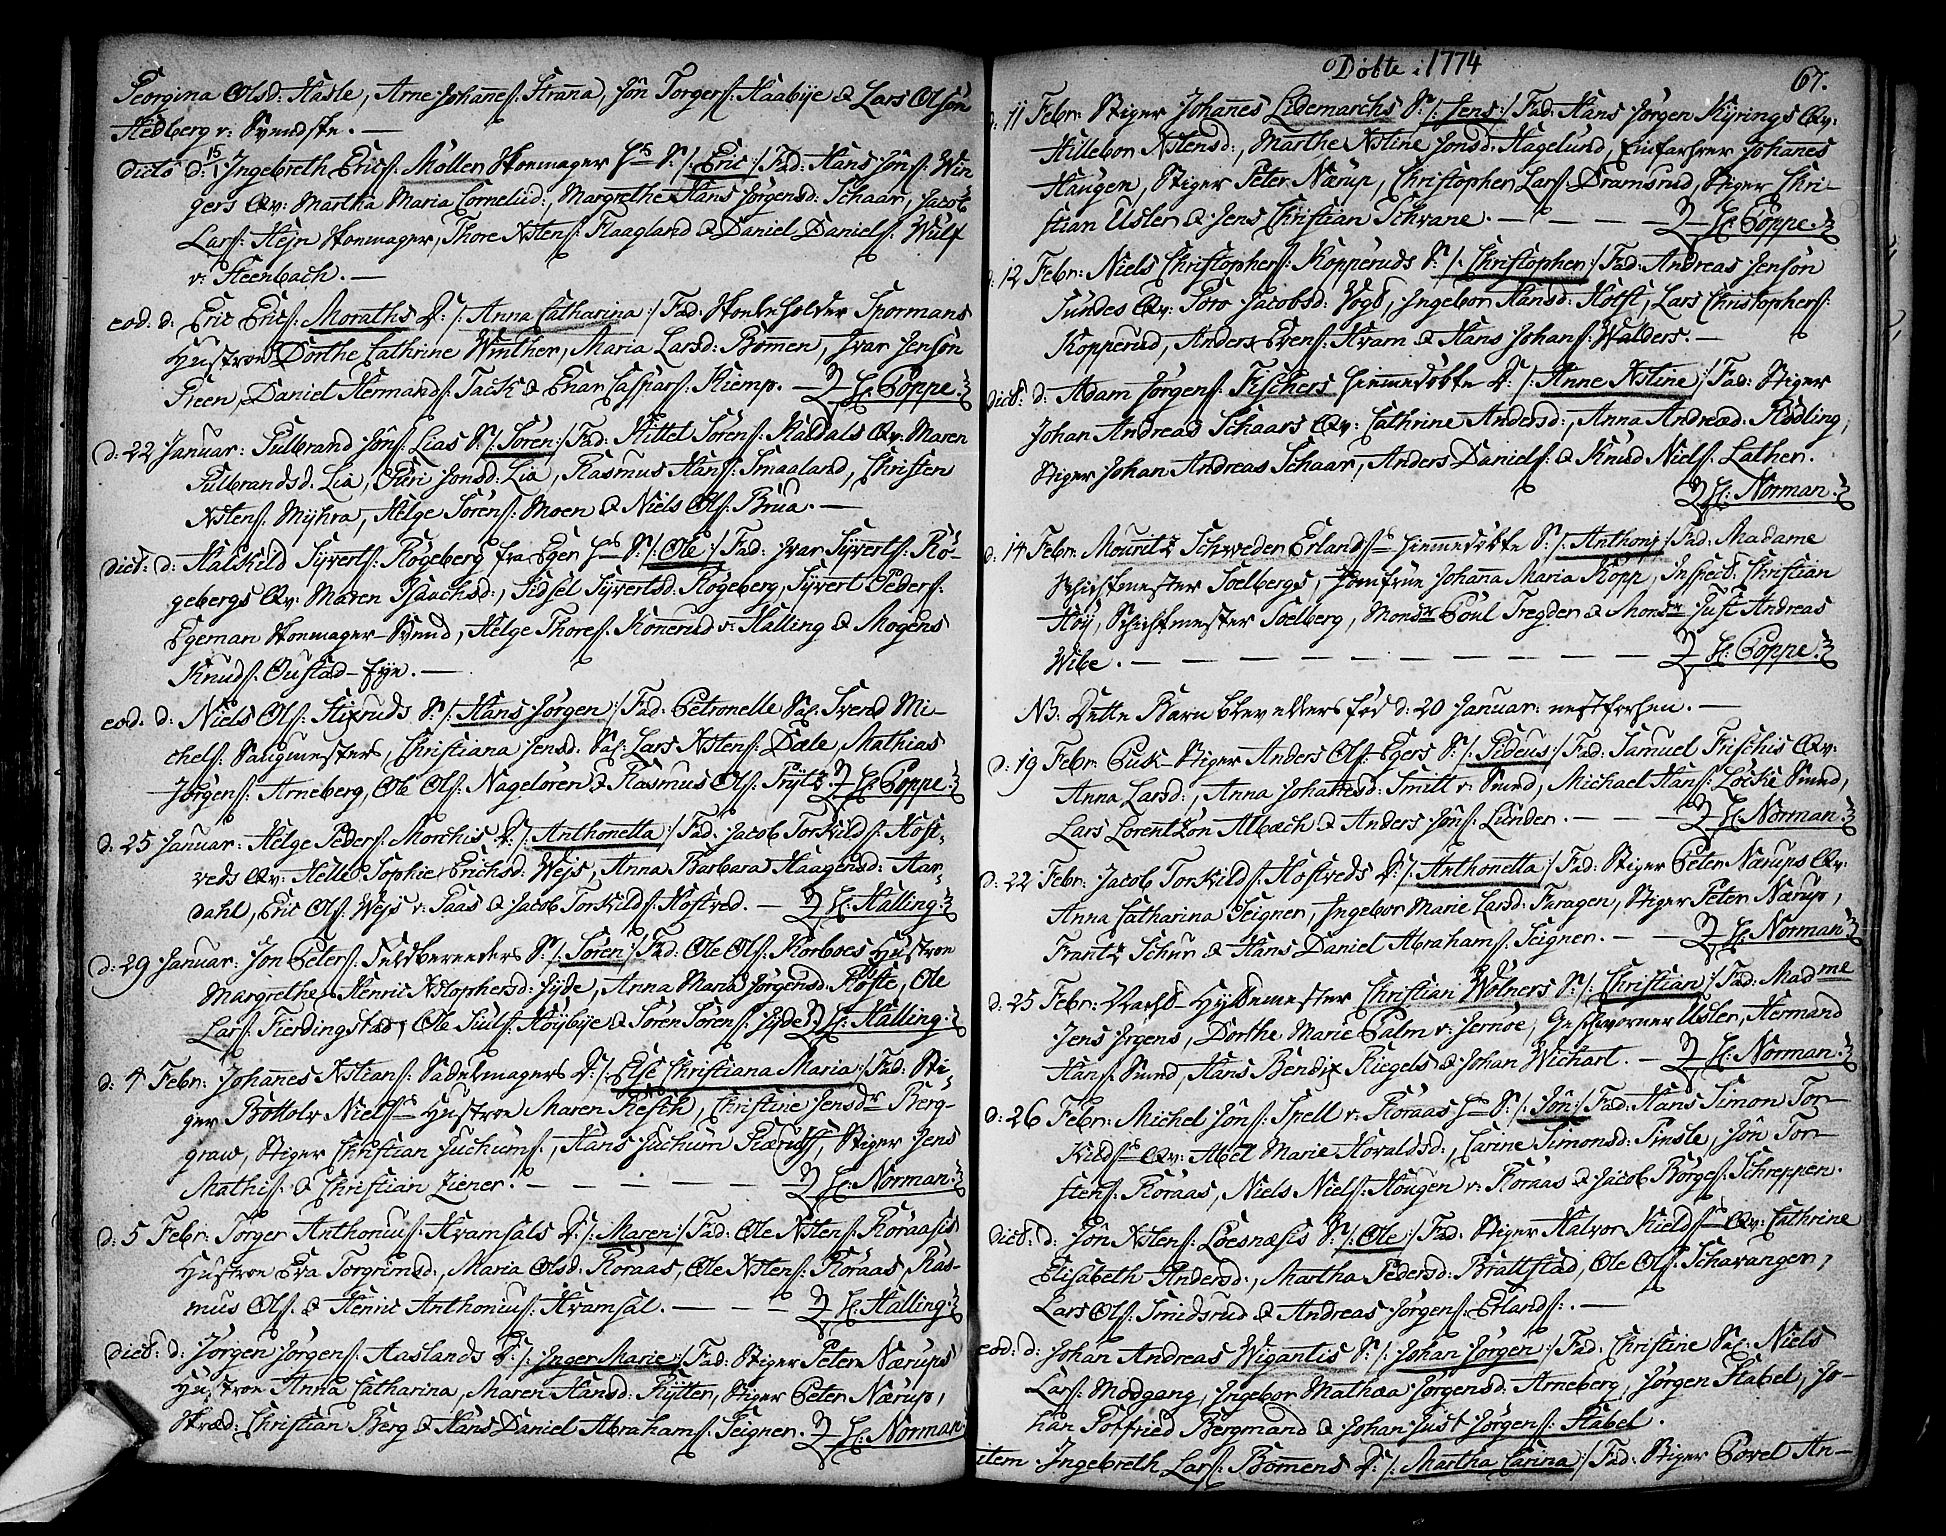 Georgina Olsd: Hasle, Arne Johannes: Stranna, Jon Torgers: Haabÿe & Lars Olsön
Hedberg v: Svendske. —
dito d: 15 Ingebreth Erics: Möllen Skomager hs S: /: Eric :/ Fad: Hans Jöns: Win
gers Qv: Martha Maria Cornelud:, Margrethe Hans Jörgensd: Schaar, Jacob
Lars: Hejn Skomager, Thore Nstens: Flaagland & Daniel Daniels: Wulf
v: Steenbach. —
eod. d: Eric Erics: Moraths D: /: Anna Catharina :/ Fad: Skoleholder Spormans
Hustroe Dorthe Cathrine Winther, Maria Larsd: Bömen, Ivar Jensön
Steen, Daniel Hermands: Tack & Enar Caspars: Kiemp. — H: Poppe.
d: 22 Januar: Gulbrand Jöns: Lias S: /: Sören :/ Fad: Kittel Sörens: Kasdals Qv: Maren
Gulbrandsd. Lia, Guri Jonsd: Lia, Rasmus Hans: Smaaland, Christen
Nstens: Myhra, Helge Sörens: Moen & Niels Ols: Brua. —
dict: d: Halskild Syverts: Rögeberg fra Eger hs S: /: Ole :/ Fad: Ivar Syverts: Rö-
gebergs Qv: Maren Isaachsd:, Sidsel Syvertsd: Rögeberg, Syvert Peders:
Egeman Skomager Svend, Helge Thores: Konerud v: Halling & Mogens
Knuds: Oustad - fyr. —
eod. d: Niels Ols: Stixruds S: /: Hans Jörgen :/ Fad: Petronelle Sal: Svend Mi-
chels: Saugmesters, Christiana Jensd: Sal: Lars Nstens: Dæle, Mathias
Jörgens: Arneberg, Ole Ols: Nagelören & Rasmus Ols: Frytz H: Poppe.
d: 25 Januar: Helge Peders: Morchis D: /: Anthonetta :/ Fad: Jacob Torkilds: Host-
veds Qv: Helle Sophie Erichsd: Wejs, Anna Barbara Haagensd: Aar-
dahl, Eric Ols: Wejs v: Saas & Jacob Torkilds: Hostved. — H: Halling.
d: 29 Januar: Jon Peters: Feldberenders S: /: Sören :/ Fad: Ole Ols: Korboes Hustroe
Margrethe Henric Nstophersd: Jyde, Anna Maria Jörgensd: Röste, Ole
Lars: Fierdingstad, Ole Siuls: Höybye & Sören Sörens: Jyde H: Halling.
d: 4 Febr: Johannes Nstians: Sadelmagers D: /: Else Christiana Maria :/ Fad: Sti-
ger Bottolv Niels: Hustroe Maren Resch, Christine Jensdr Berg-
graw, Stiger Christian Juchums:, Hans Juchum, Stiger Jens
Mathis: & Christian Ziener. — H: Norman.
d: 5 Febr: Torger Anthonius: Hvamsals D: /: Maren :/ Fad: Ole Nstens: Roraasis
Hustroe Eva Torgrimsd:, Maria Olsd: Roraas, Ole Nstens: Roraas, Ras-
mus Ols: & Henric Anthonius: Hvamsal. — — — H: Halling.
dict: d: Jörgen Jörgens: Aaslands D: /: Inger Marie :/ Fad: Stiger Peter Nærups
Hustroe Anna Catharina, Maren Hansd: Rytter, Stiger Peter Nærup,
Skræd: Christian Berg & Hans Daniel Abrahams: Seigner. H: Norman
Döbte i 1774
67.
d: 11 Febr: Stiger Johannes Lidemarchs S: /: Jens :/ Fad: Hans Jörgen Kyrings Qv:
Hillebor Nstensd:, Marthe Nstine Jonsd: Hagelund, Einfahrer Johannes
Haugen, Stiger Peter Nærup, Christopher Lars: Dramsrud, Stiger Chri-
stian Usler & Jens Christian Schrane. — — — — H: Poppe.
d: 12 Febr: Niels Christophers: Kopperuds S: /: Christopher :/ Fad: Andreas Jensön
Sundes Qv: Toro Jacobsd: Vogd, Ingebor Hansd: Holst, Lars Christophers:
Kopperud, Anders Evens: Kvam & Hans Johans: Walders. —
dict: d: Adam Jörgens: Fischers hiemmedöbte D: /: Anne Nstine :/ Fad: Stiger
Johan Andreas Schaars Qv: Cathrine Andersd:, Anna Andreæd: Rödling,
Stiger Johan Andreas Schaar, Anders Daniels: & Knud Niels: Lather.
H: Norman.
d: 14 Febr: Mouritz Schweder Erlands: hiemmedöbte S: /: Anthonj :/ Fad: Madame
Schichtmester Soelbergs, Jomfrue Johanna Maria Kopp, Inspect: Christian
Höy, Schichtmester Soelberg, Monsr Poul Tregder & Monsr Just Andreas
Wibe. — — — — — — — — H: Poppe.
NB: Dette Barn blev ellers fød d: 20 Januar: nestforhen. —
d: 19 Febr: Puk-Stiger Anders Ols: Egers S: /: Gideus :/ Fad: Samuel Frischis Qv:
Anna Larsd:, Anna Johannesd: Smitt v: Smed, Michael Hans: Löcke Smed,
Lars Lorentzön Albach & Anders Jöns: Lunder. — — — H: Norman.
d: 22 Febr: Jacob Torkilds: Hostveds D: /: Anthonetta :/ Fad: Stiger Peter Nærups Qv:
Anna Catharina Seigner, Ingebor Marie Larsd: Faragen, Stiger Peter Nærup,
Frantz Schur & Hans Daniel Abrahams: Seigner. — — H: Norman.
d: 25 Febr: Vacht-Hyttemester Christian Wölners S: /: Christian :/ Fad: Madme
Jens Jrgens, Dorthe Marie Palm v: Jernöe, Geschworner Usler, Hermand
Hans: Smed, Hans Bendix Riegels & Johan Wichart. — H: Norman.
d: 26 Febr: Michel Jöns: Spell v: Roraas hs S: /: Jön :/ Fad: Hans Simon Tor-
kilds: Qv: Abel Marie Horaldsd:, Carine Simonsd: Sinsle, Jön Tor-
stens: Roraas, Niels Niels: Hougen v: Roraas & Jacob Börges: Schreppen.
dict: d: Jön Nstens: Loesnæsis S: /: Ole :/ Fad: Stiger Halvor Kields: Qv: Cathrine
Elisabeth Andersd:, Martha Pedersd: Brattstad, Ole Ols: Schavangen,
Lars Ols: Smidsrud & Andreas Jörgens: Erlands:. —
eod: d: Johan Andreas Wigantis S: /: Johan Jörgen :/ Fad: Christine Sal: Niels
Lars: Modgang, Ingebor Mathæa Jörgensd: Arneberg, Jörgen Stabel, Jo-
han Gotfried Bergmand & Johan Just Jörgens: Stabel.
item Ingebreth Lars: Bömens D: /: Martha Carina :/ Fad: Stiger Povel An-